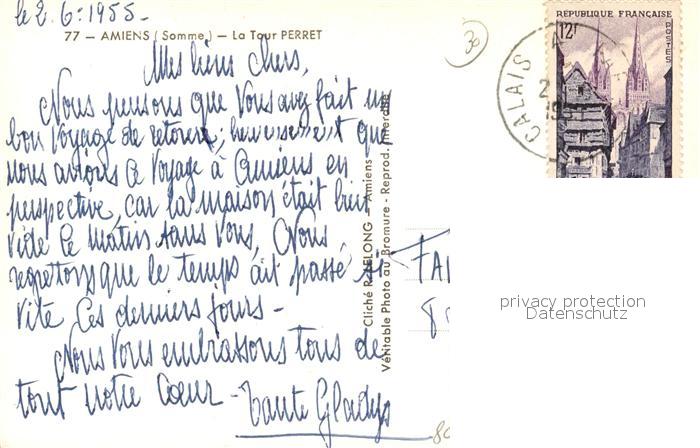 le 2.6.1955_
77 — AMIENS (Somme) — La Tour PERRET
30
Mes biens chers,
Nous pensons que vous avez fait un
bon voyage de retour; heureusement que
nous avions ce voyage à Amiens en
perspective, car la maison était bien
vide le matin sans vous, Nous
regrettons que le temps ait passé si
vite ces derniers jours-
Nous vous embrassons tous de
tout notre Cœur - Tante Gladys
Cliché R. LELONG — Amiens
Véritable Photo au Bromure - Reprod. interdite
RÉPUBLIQUE FRANÇAISE
12F
POSTES
CALAIS
FA
8
80
privacy protection
Datenschutz